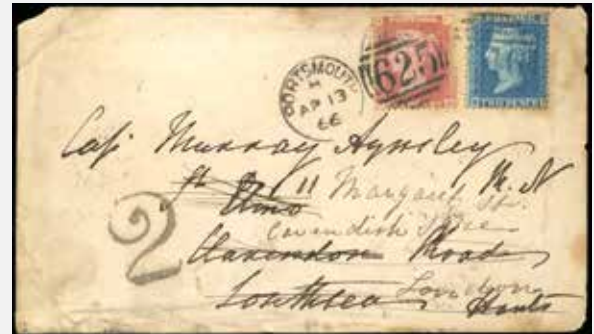 PORTSMOUTH
H
AP 13
66
625
Capt Murray Aynsley
R.N
St Elmo
11 Margaret Str.
Cavendish Sqre
Clarendon Road
Southsea
London
Hants
2